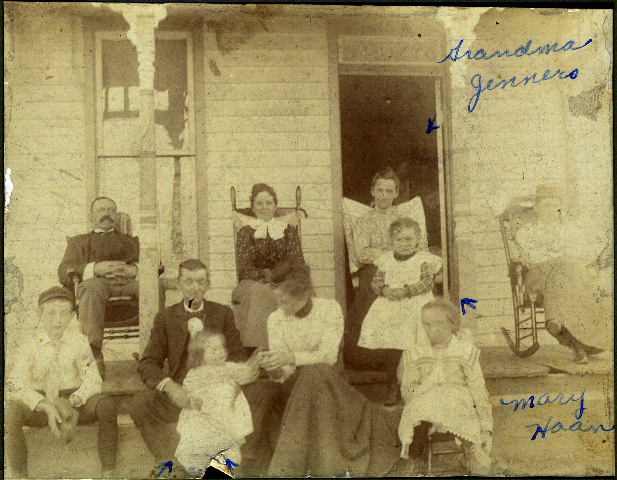 Grandma
Jenners
Mary
Haan